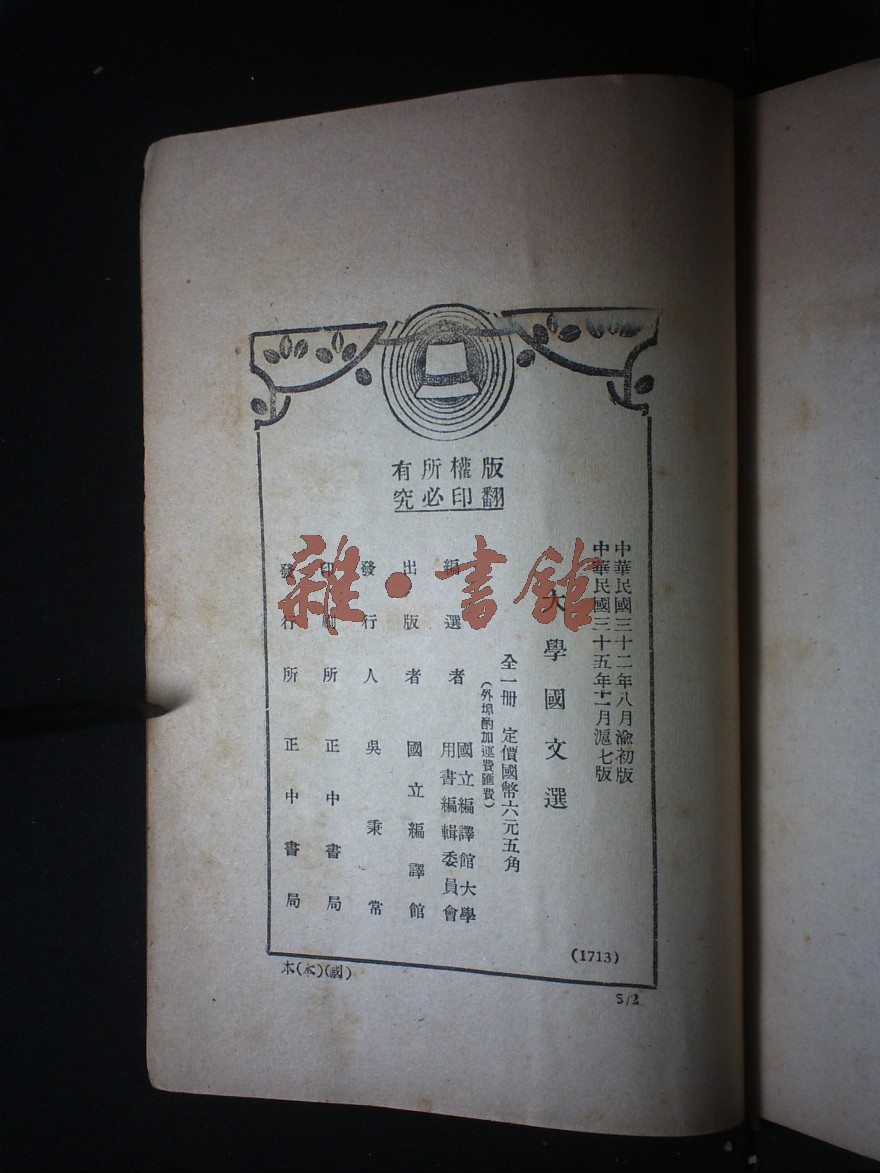 版權所有
翻印必究
中華民國三十二年八月渝初版
中華民國三十五年十一月滬七版
大學國文選
全一冊 定價國幣六元五角
(外埠酌加運費匯費)
編選者 國立編譯館大學
用書編輯委員會
出版者 國立編譯館
發行人 吳秉常
印刷所 正中書局
發行所 正中書局
(1713)
5/2
雜·書館